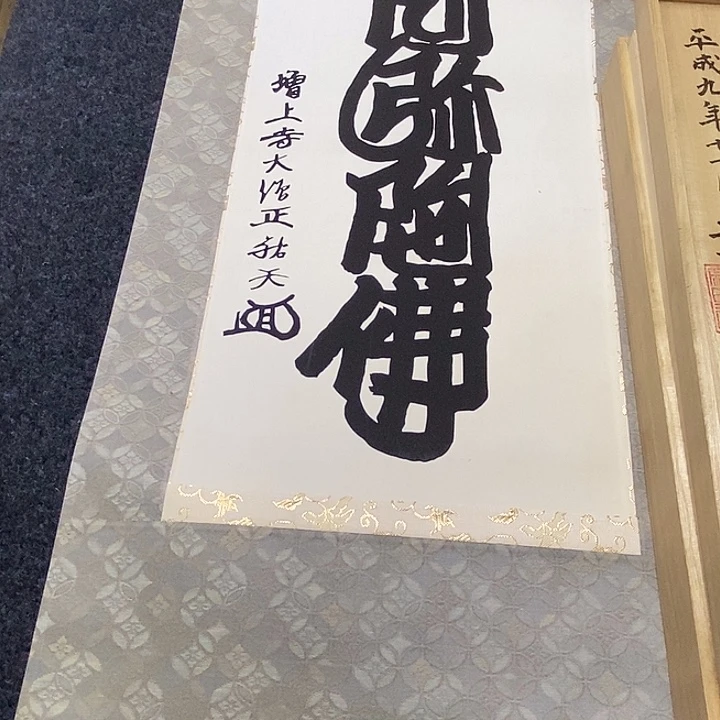 阿弥陀佛
増上寺大僧正祐天
平成九年十